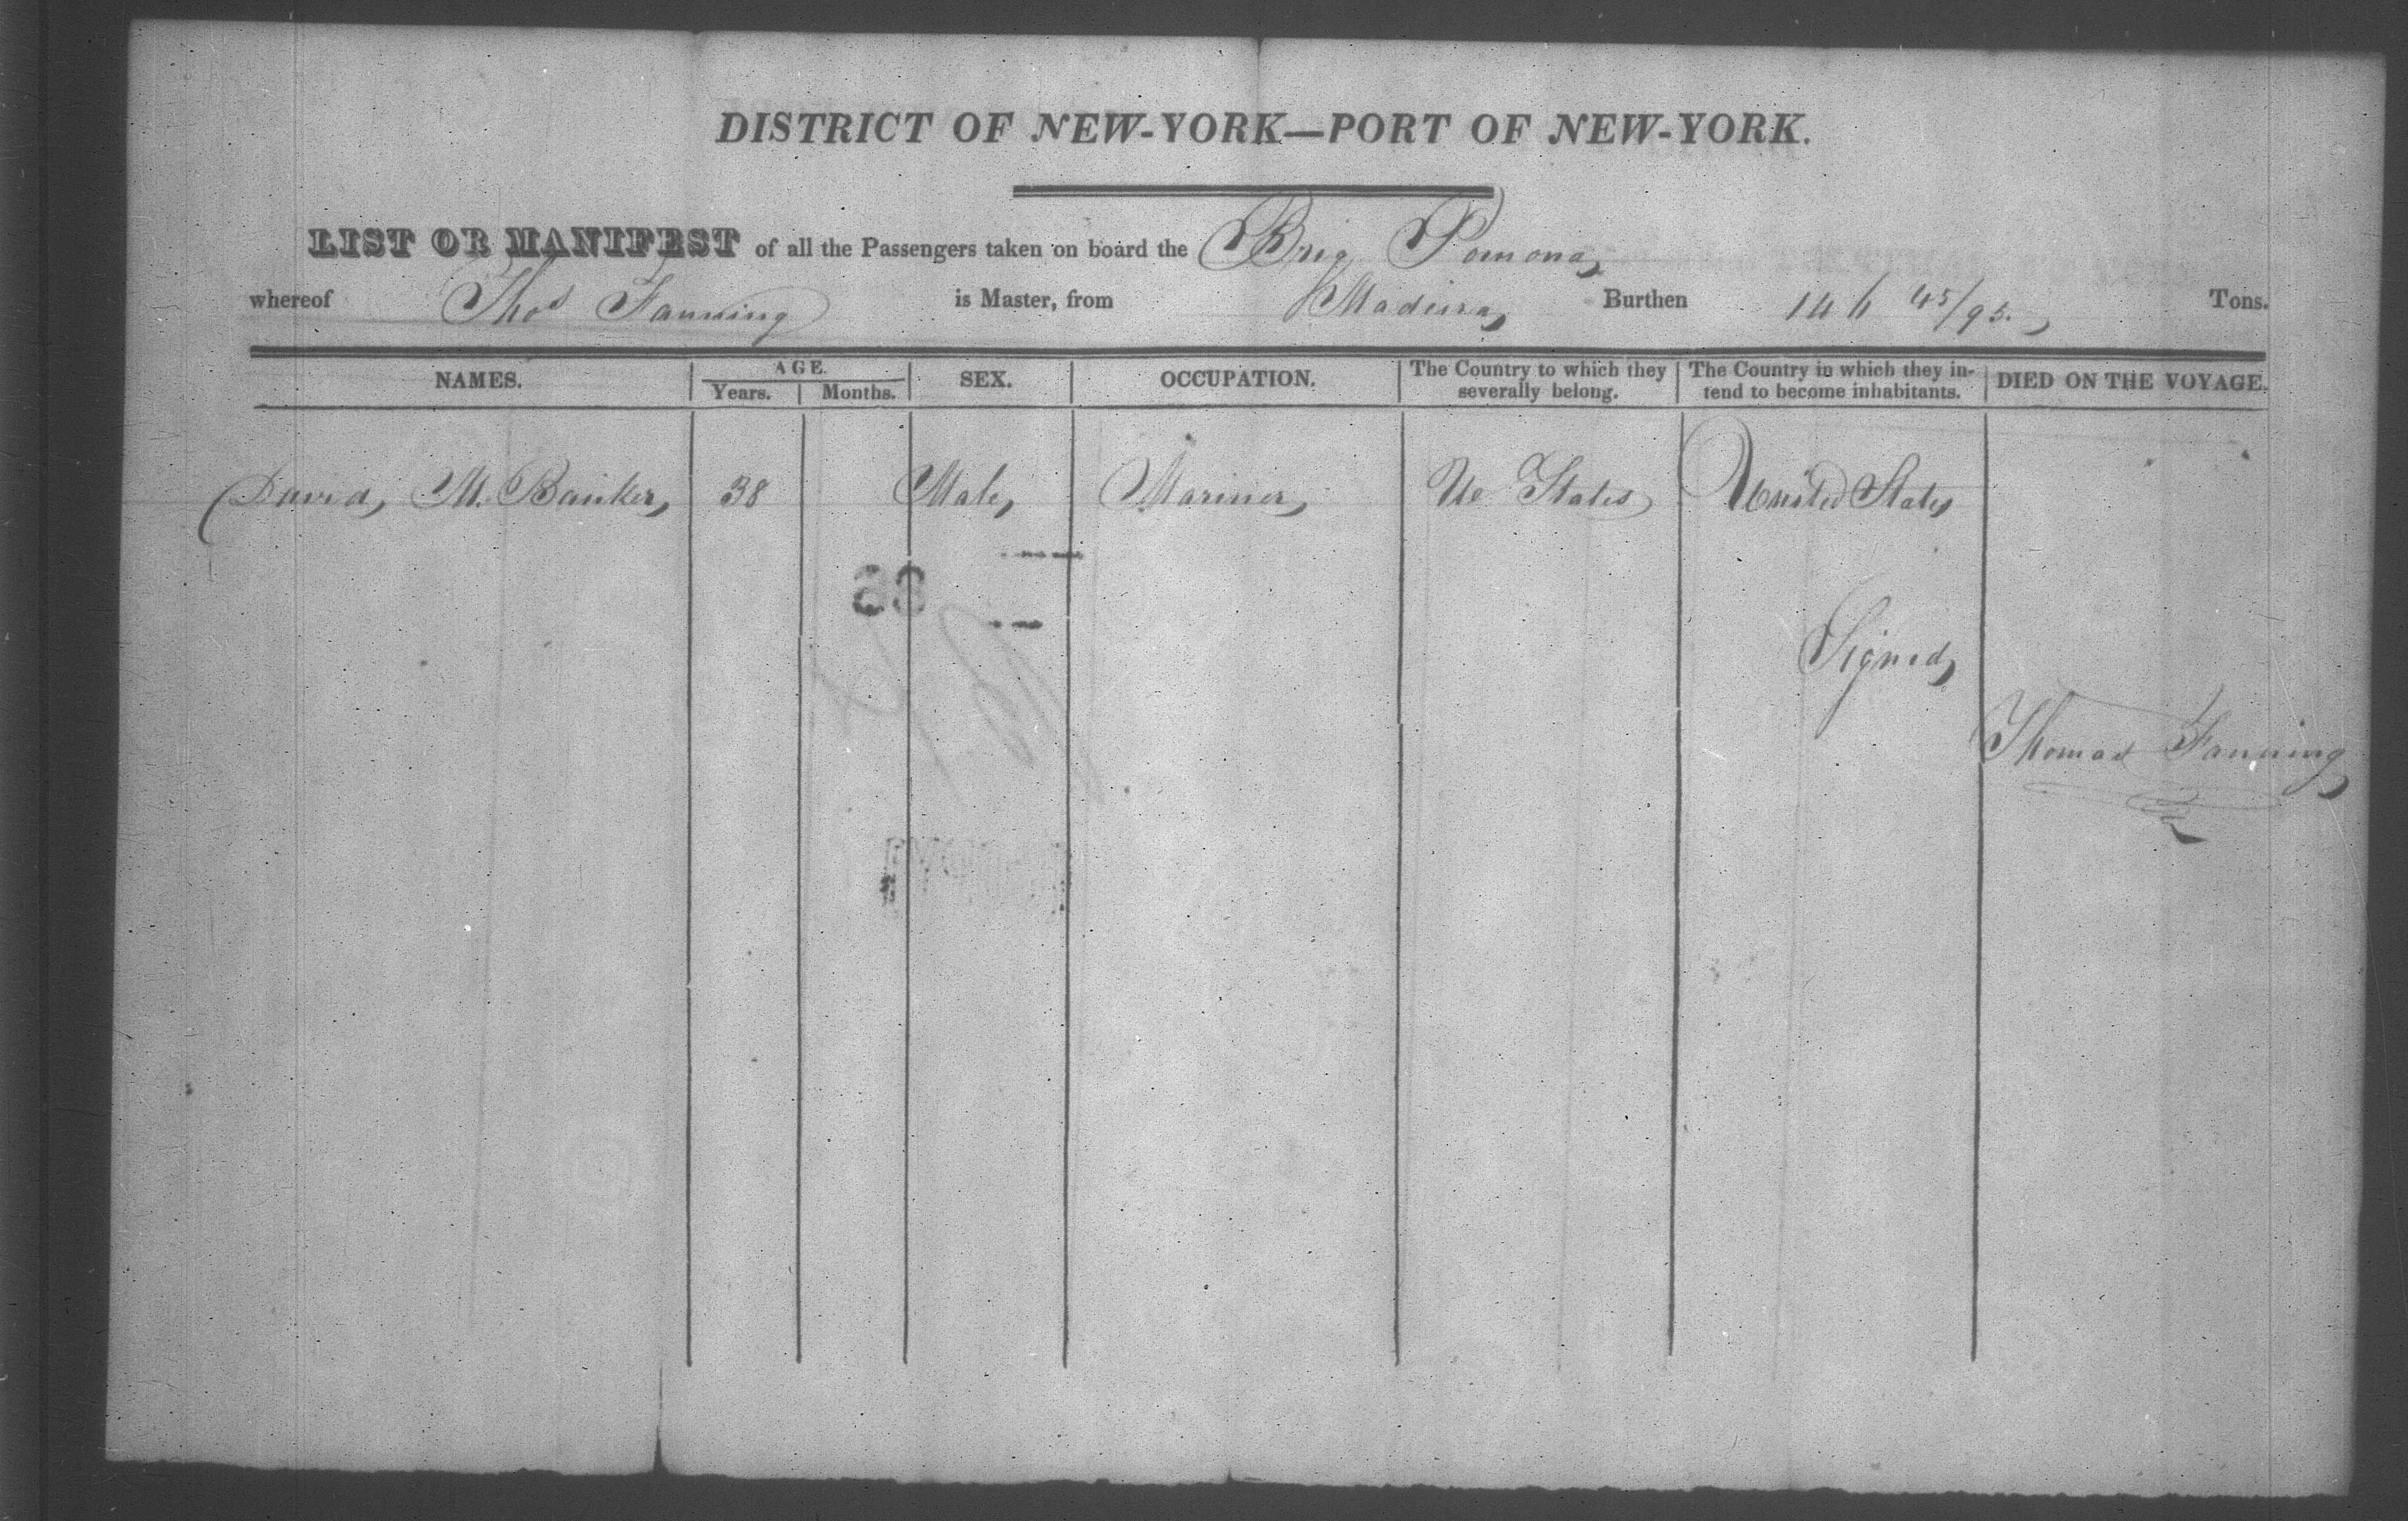 DISTRICT OF NEW-YORK—PORT OF NEW-YORK.
LIST OR MANIFEST of all the Passengers taken on board the Brig Pomona
whereof Thos Fanning is Master, from Madeira Burthen 146 45/95. Tons.
NAMES. AGE. SEX. OCCUPATION. The Country to which they severally belong. The Country in which they in- tend to become inhabitants. DIED ON THE VOYAGE.
Years. Months.
David M. Banker 38 Male Mariner Ue States United States
Signed
Thomas Fanning